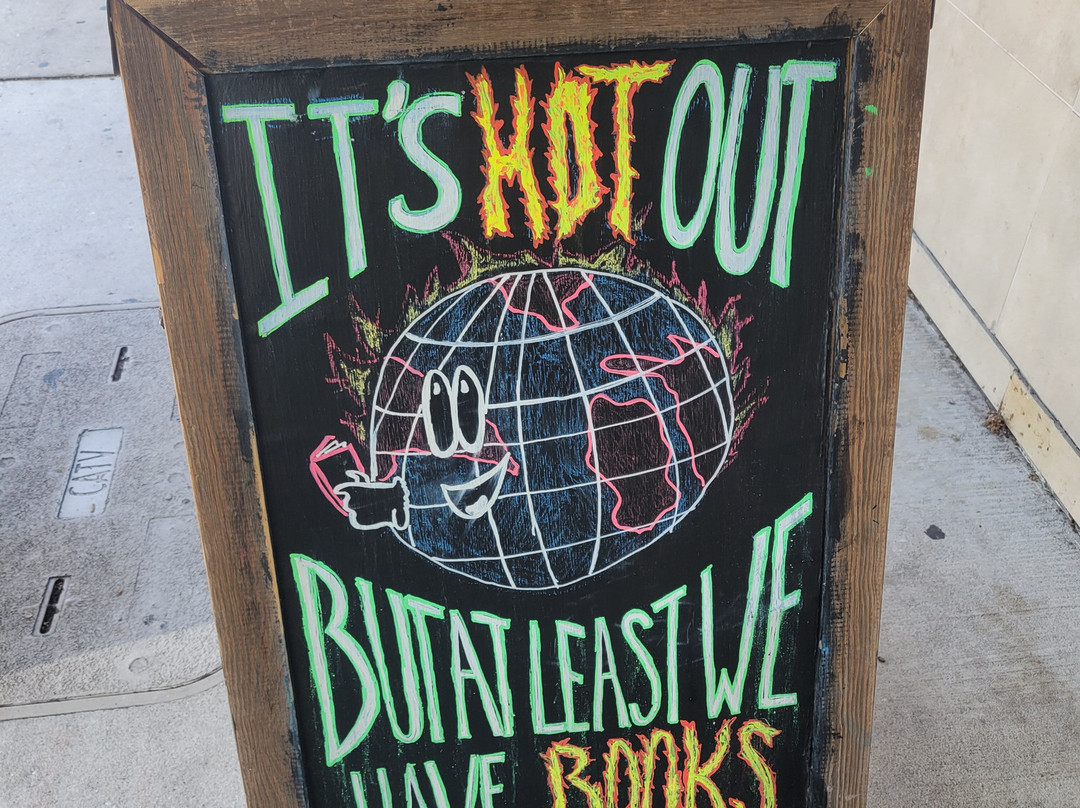 IT'S HOT OUT
BUT AT LEAST WE
HAVE BOOKS
CATV